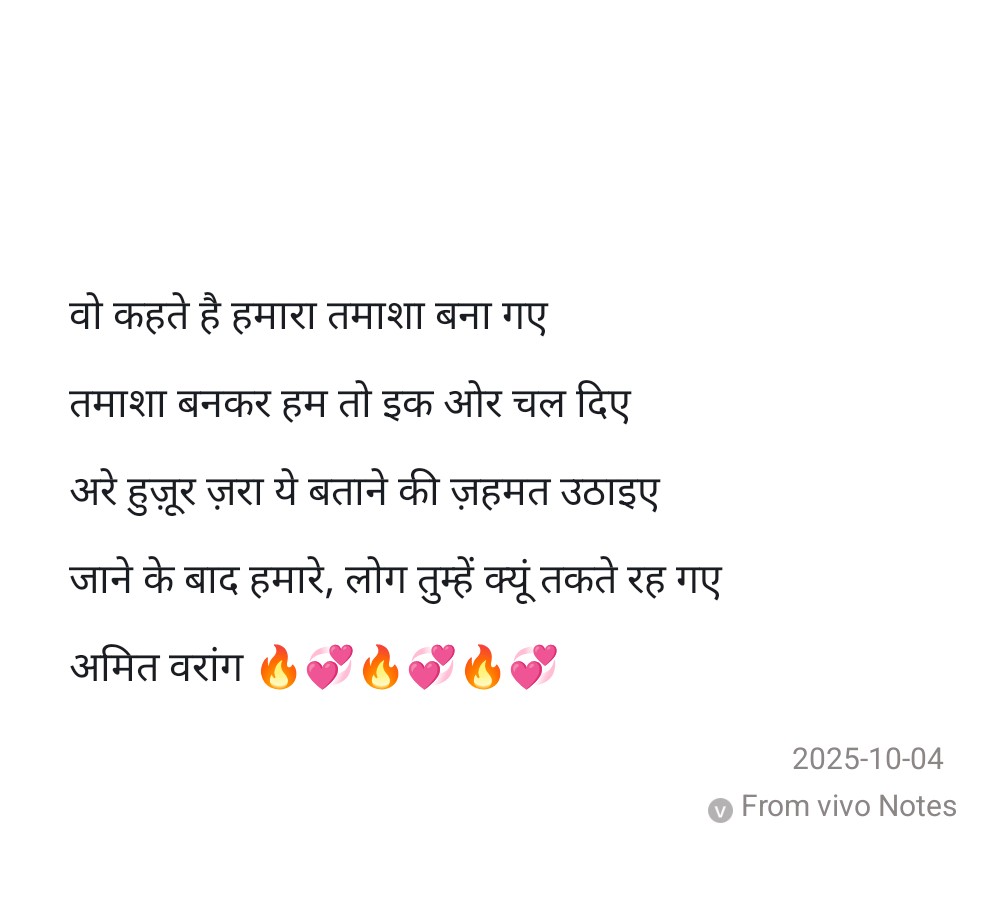 वो कहते है हमारा तमाशा बना गए
तमाशा बनकर हम तो इक ओर चल दिए
अरे हुज़ूर ज़रा ये बताने की ज़हमत उठाइए
जाने के बाद हमारे, लोग तुम्हें क्यूं तकते रह गए
अमित वरांग 🔥💞🔥💞🔥💞
2025-10-04
v From vivo Notes